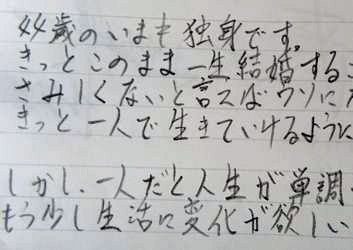 44歳のいまも独身です。
きっとこのまま一生結婚する
さみしくないと言えばウソに
きっと一人で生きていけるように
しかし、一人だと人生が単調
もう少し生活に変化が欲しい